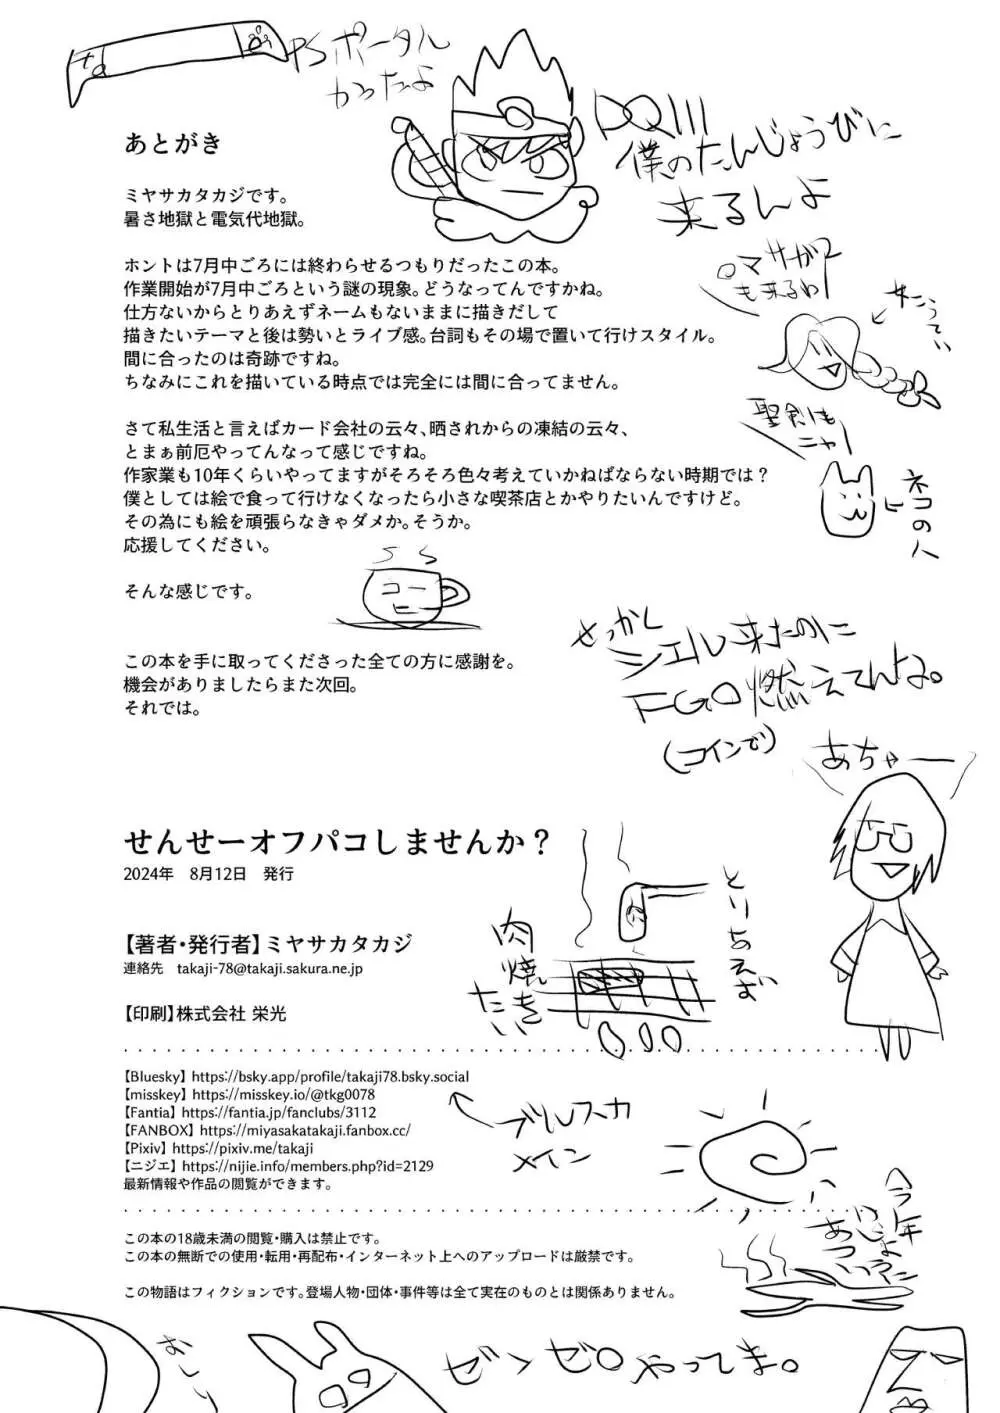 PSポータル
かったよ
DQIII
僕のたんじょうびに
来るんよ
あとがき
ミヤサカタカジです。
暑さ地獄と電気代地獄。
ロマサガ2
も来るわ
ホントは7月中ごろには終わらせるつもりだったこの本。
作業開始が7月中ごろという謎の現象。どうなってんですかね。
仕方ないからとりあえずネームもないままに描きだして
描きたいテーマと後は勢いとライブ感。台詞もその場で置いて行けスタイル。
間に合ったのは奇跡ですね。
ちなみにこれを描いている時点では完全には間に合ってません。
聖剣も
ニャー
ネコの人
さて私生活と言えばカード会社の云々、晒されからの凍結の云々、
とまぁ前厄やってんなって感じですね。
作家業も10年くらいやってますがそろそろ色々考えていかねばならない時期では？
僕としては絵で食って行けなくなったら小さな喫茶店とかやりたいんですけど。
その為にも絵を頑張らなきゃダメか。そうか。
応援してください。
そんな感じです。
コーヒー
せっかく
シエル来たのに
FGO燃えてんよ。
(コインで)
この本を手に取ってくださった全ての方に感謝を。
機会がありましたらまた次回。
それでは。
あちゃー
せんせーオフパコしませんか？
2024年　8月12日　発行
とりちえば
肉焼きたい
【著者・発行者】ミヤサカタカジ
連絡先　takaji-78@takaji.sakura.ne.jp
【印刷】株式会社 栄光
【Bluesky】https://bsky.app/profile/takaji78.bsky.social
【misskey】https://misskey.io/@tkg0078
【Fantia】https://fantia.jp/fanclubs/3112
【FANBOX】https://miyasakatakaji.fanbox.cc/
【Pixiv】https://pixiv.me/takaji
【ニジエ】https://nijie.info/members.php?id=2129
最新情報や作品の閲覧ができます。
ブルスカ
メイン
今年
この本の18歳未満の閲覧・購入は禁止です。
この本の無断での使用・転用・再配布・インターネット上へのアップロードは厳禁です。
この物語はフィクションです。登場人物・団体・事件等は全て実在のものとは関係ありません。
おしり
ゼンゼロやってま。